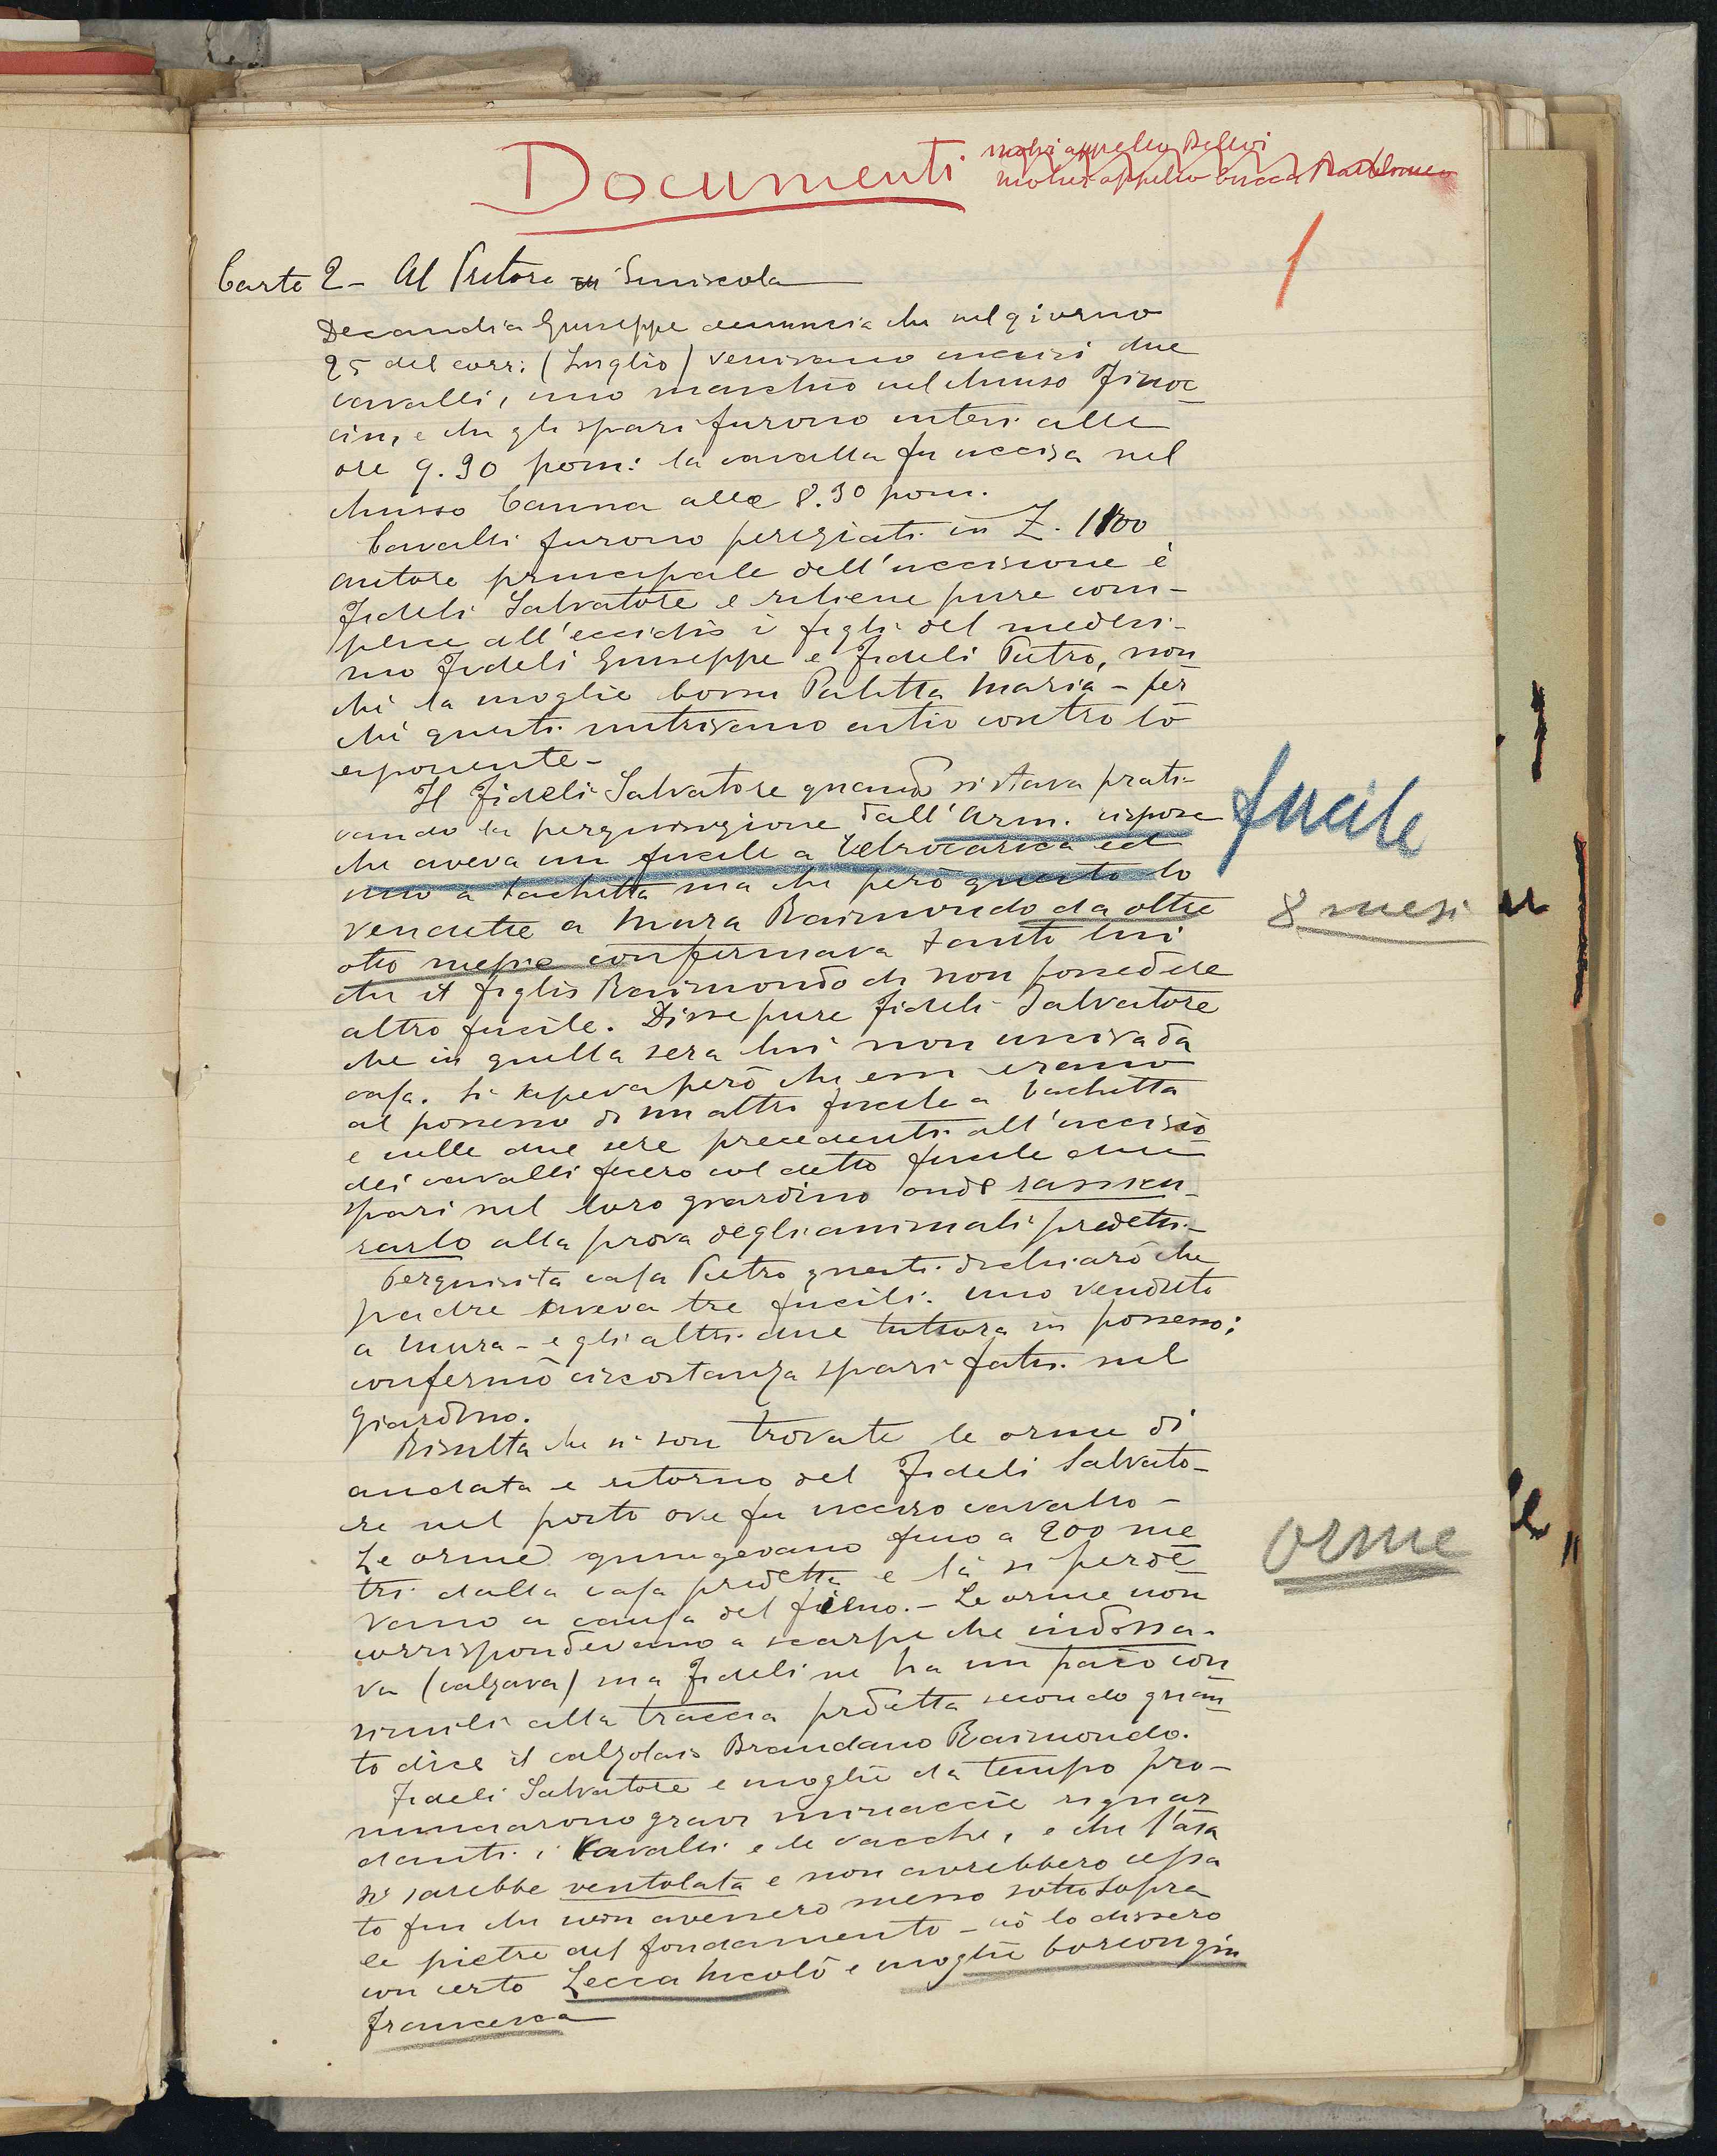 Documenti
1
Carte 2 - Al Pretore Siniscola
Decandia Giuseppe denuncia che nel giorno
25 del corr: (Luglio) venivano uccisi due
cavalli, uno maschio nel chiuso
e che gli spari furono intesi alle
ore 9.30 pom: la cavalla fu uccisa nel
chiuso Canna alle 8.30 pom.
Cavalli furono periziati in L.
autore principale dell'uccisione è
Fideli Salvatore e ritiene pure com-
plice all'eccidio i figli del medesi-
mo Fideli Giuseppe e Fideli Pietro, non
chè la moglie Maria - per
chè questi nutrivano astio contro lo
esponente -
Il Fideli Salvatore quando si stava prati-
cando la perquisizione dall'Arm. rispose
che aveva un fucile a retrocarica ed
uno a bachetta ma che però questo lo
vendette a Mura Raimondo da oltre
otto mesi e confermava tanto lui
che il figlio Raimondo di non possedere
altro fucile. Disse pure Fideli Salvatore
che in quella sera lui non usciva da
casa. Si sapeva però che essi erano
al possesso di un altro fucile a bachetta
e nelle due sere precedenti all'uccisio
dei cavalli fecero col detto fucile due
spari nel loro giardino onde rassicu-
rarlo alla prova degli animali predetti -
Perquisita casa Pietro questi dichiarò che
padre aveva tre fucili: uno venduto
a Mura - e gli altri due tuttora in possesso;
confermò circostanza spari fatti nel
giardino.
Risulta che si son trovate le orme di
andata e ritorno del Fideli Salvato-
re nel posto ove fu ucciso cavallo -
Le orme giungevano fino a 200 me
tri dalla casa predetta e là si perde
vano a causa del fieno. - Le orme non
corrispondevano a scarpe che indossa-
va (calzava) ma Fideli ne ha un paio con
simili alla traccia predetta secondo quan
to dice il calzolaio Brandano Raimondo.
Fideli Salvatore e moglie da tempo pro-
nunciarono gravi minaccie riguar
danti i cavalli e le vacche, e che
si sarebbe ventolata e non avrebbero cessa
to fin che non avessero messo sotto sopra
le pietre del fondamento - ciò lo dissero
con certo Lecca Nicolò e moglie
Francesca
fucile
8 mesi
orme